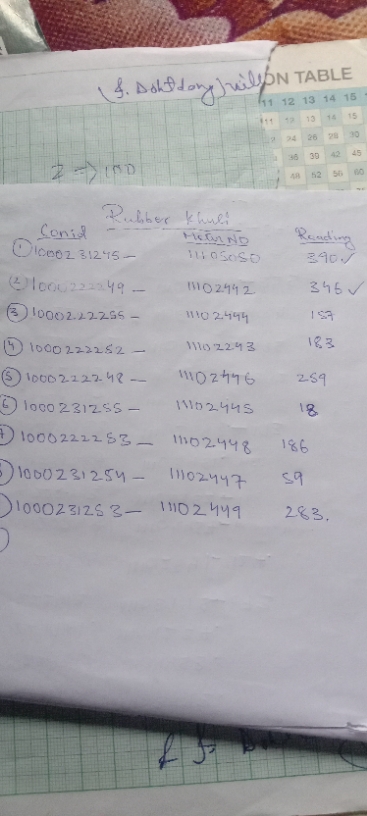 ON TABLE
11 12 13 14 15
11 12 13 14 15
24 26 28 30
36 39 42 45
48 52 56 60
2 => 100
Rubber Khuli
Conid Meter NO Reading
① 1000231245 — 11105050 390 ✓
② 1000222249 — 11102442 346 ✓
③ 1000222255 — 11102444 157
④ 1000222252 — 11102293 183
⑤ 1000222248 — 11102446 259
⑥ 1000231255 — 11102445 18
7 1000222253 — 11102448 186
1000231254 — 11102447 59
1000231253 — 11102449 283.